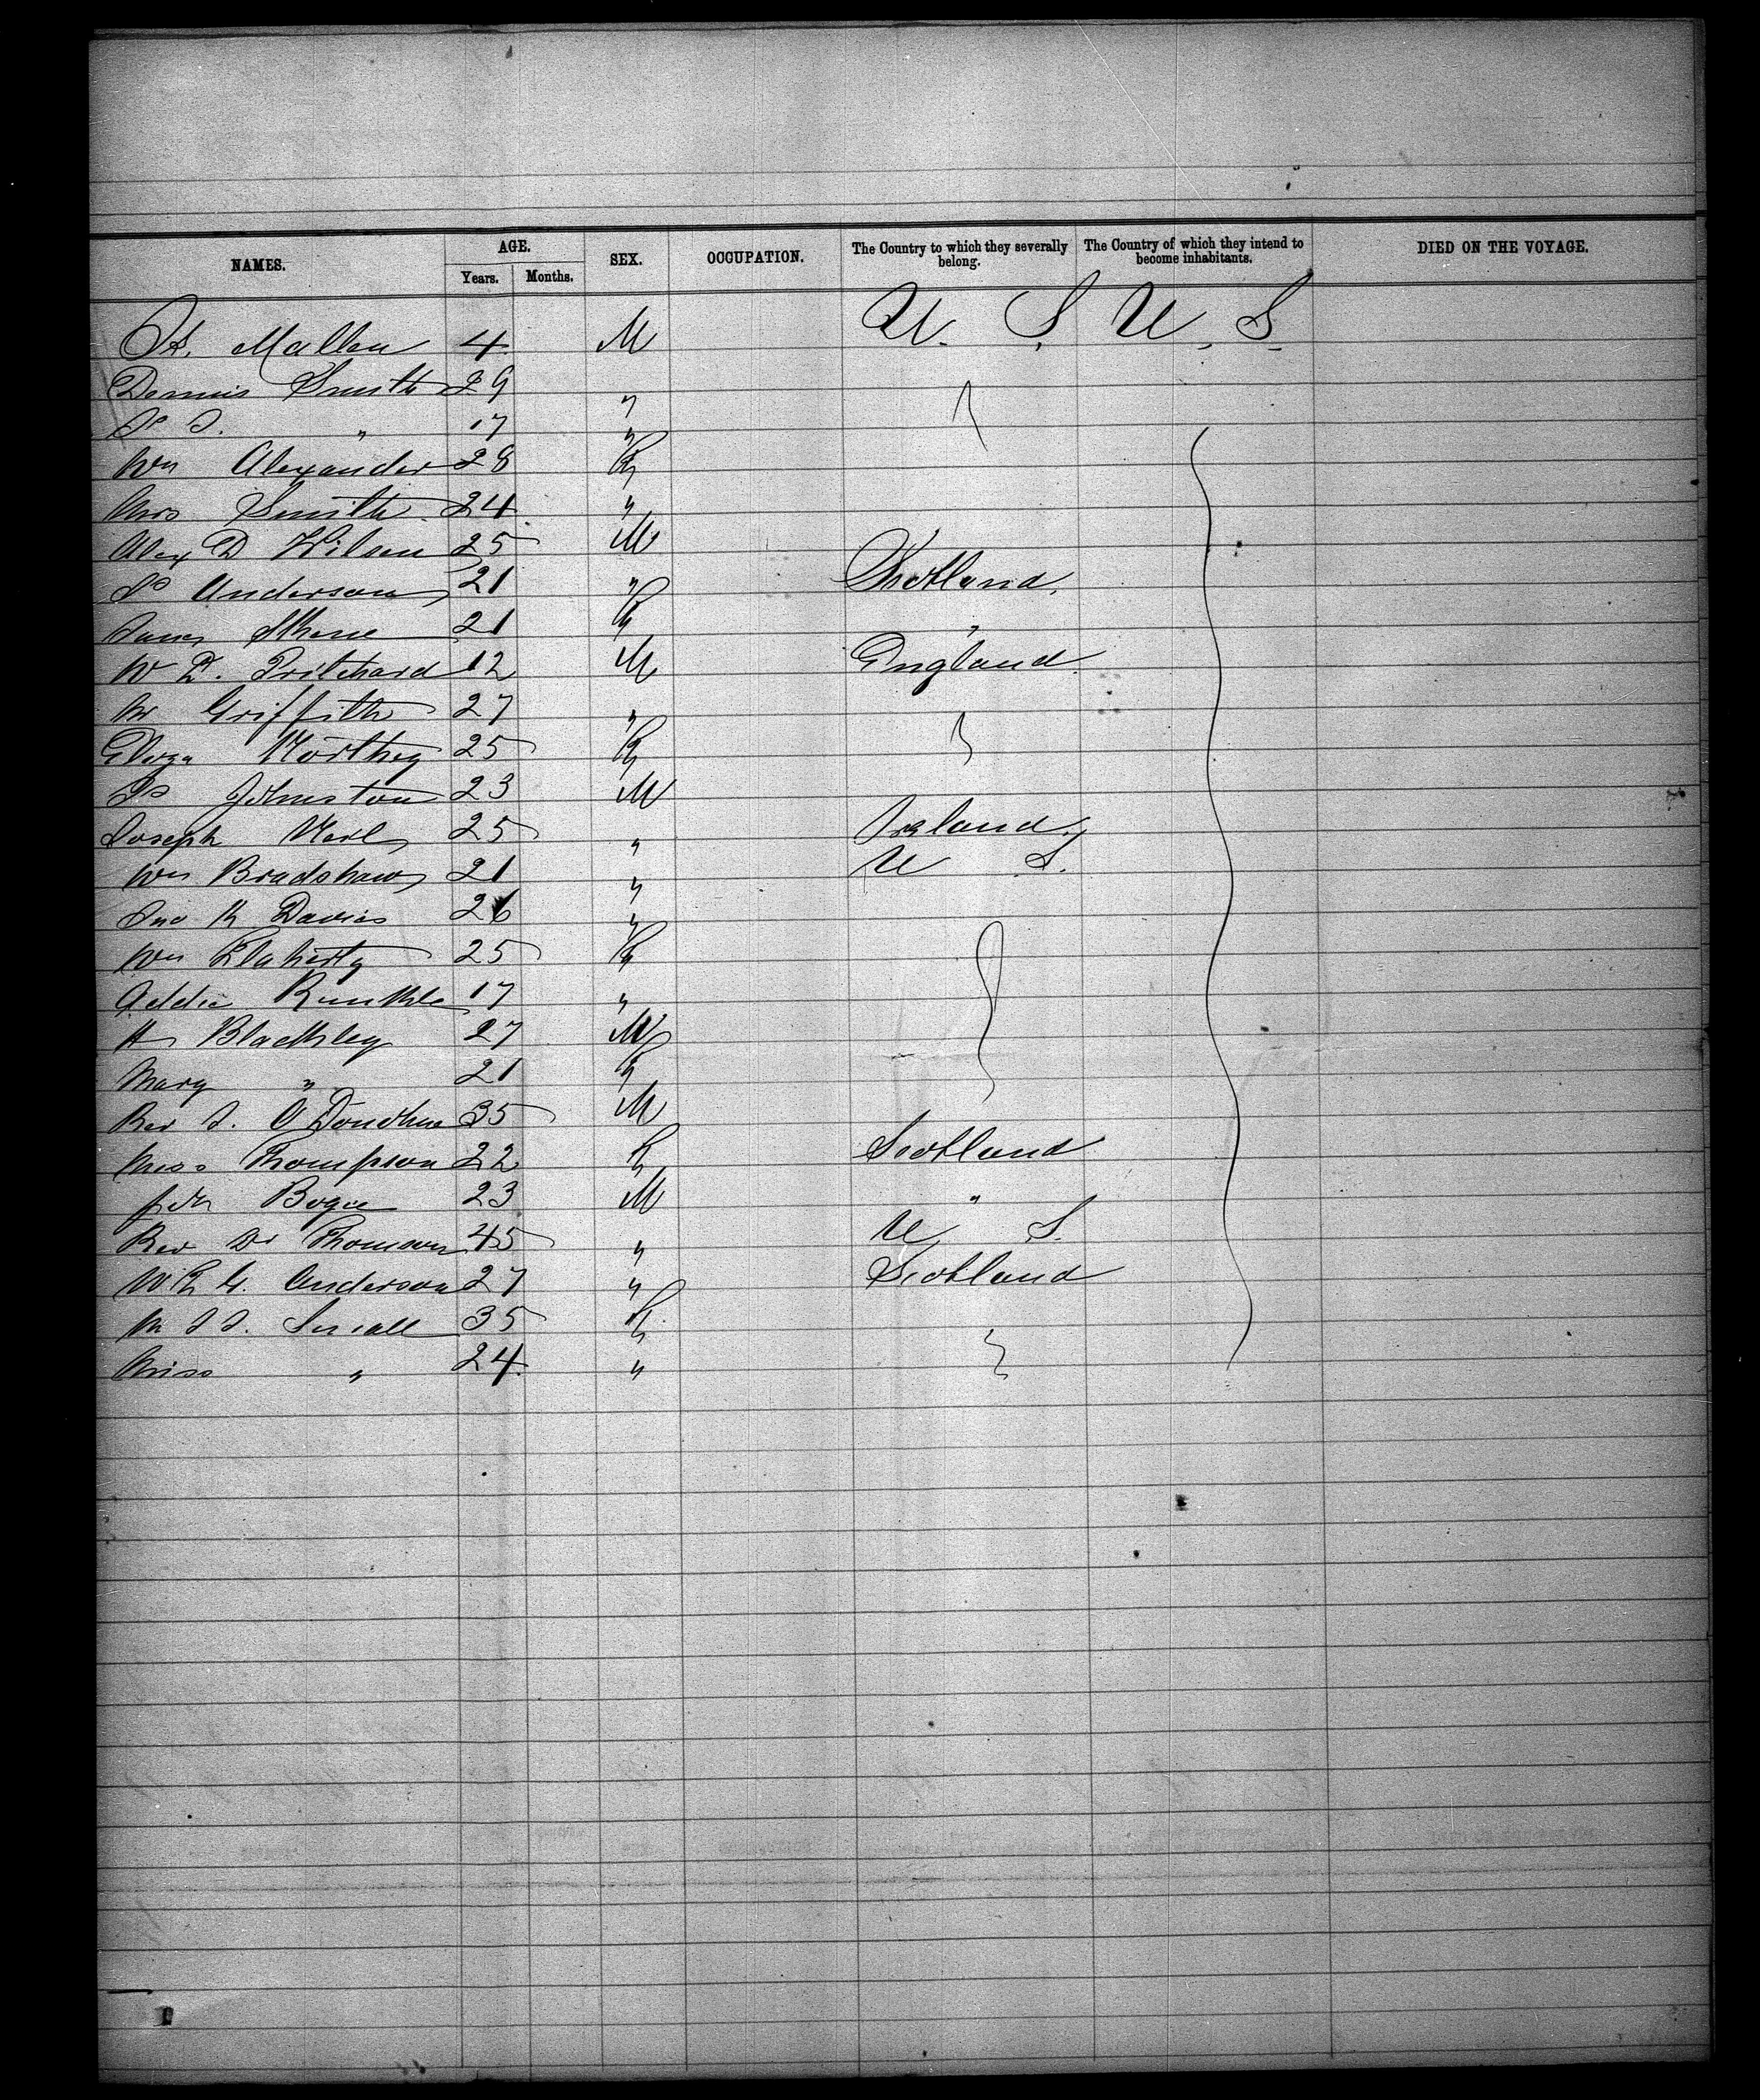 NAMES. AGE. SEX. OCCUPATION. The Country to which they severally belong. The Country of which they intend to become inhabitants. DIED ON THE VOYAGE.
Years. Months.
A. Mallen 4 M U. S. U. S.
Dennis Smith 29 "
" 17 "
Wm Alexander 28 F
Mrs Smith 24 "
Alex D Wilson 25 M
Js Anderson 21 " Scotland.
21 F "
W D. Pritchard 12 M England
Griffith 27 "
Eliza 25 F
Js Johnston 23 M
Joseph 25 " Ireland
Wm Bradshaw 21 " U S.
Jno R Davies 26 "
Wm Flaherty 25 F
Addie 17 "
H Blackley 27 M
Mary " 21 F
Rev J. O'Donohue 35 M
Miss Thompson 22 F Scotland
Bogie 23 M "
Rev Dr Thomson 45 " U S.
W R G. Anderson 27 " Scotland
M J J. Small 35 F
Miss " 24 "